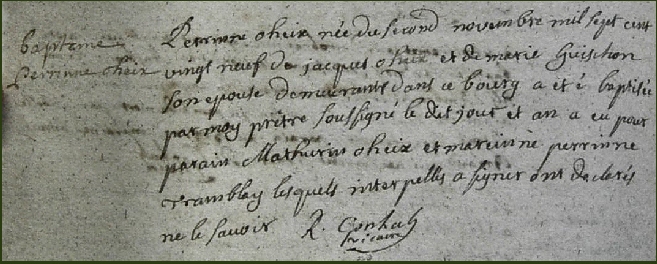 baptême
Perrinne oheix
Perrinne oheix née du second novembre mil sept cent
vingt neuf de jacques oheix et de marie Guischon
son epouse demeurants dans ce bourg a eté baptisée
par moy prêtre soussigné le dit jour et an a eu pour
parain Mathurin oheix et maraine perrinne
Tramblay lesquels interpellés a signer ont declarés
ne le savoir R.
vicaire